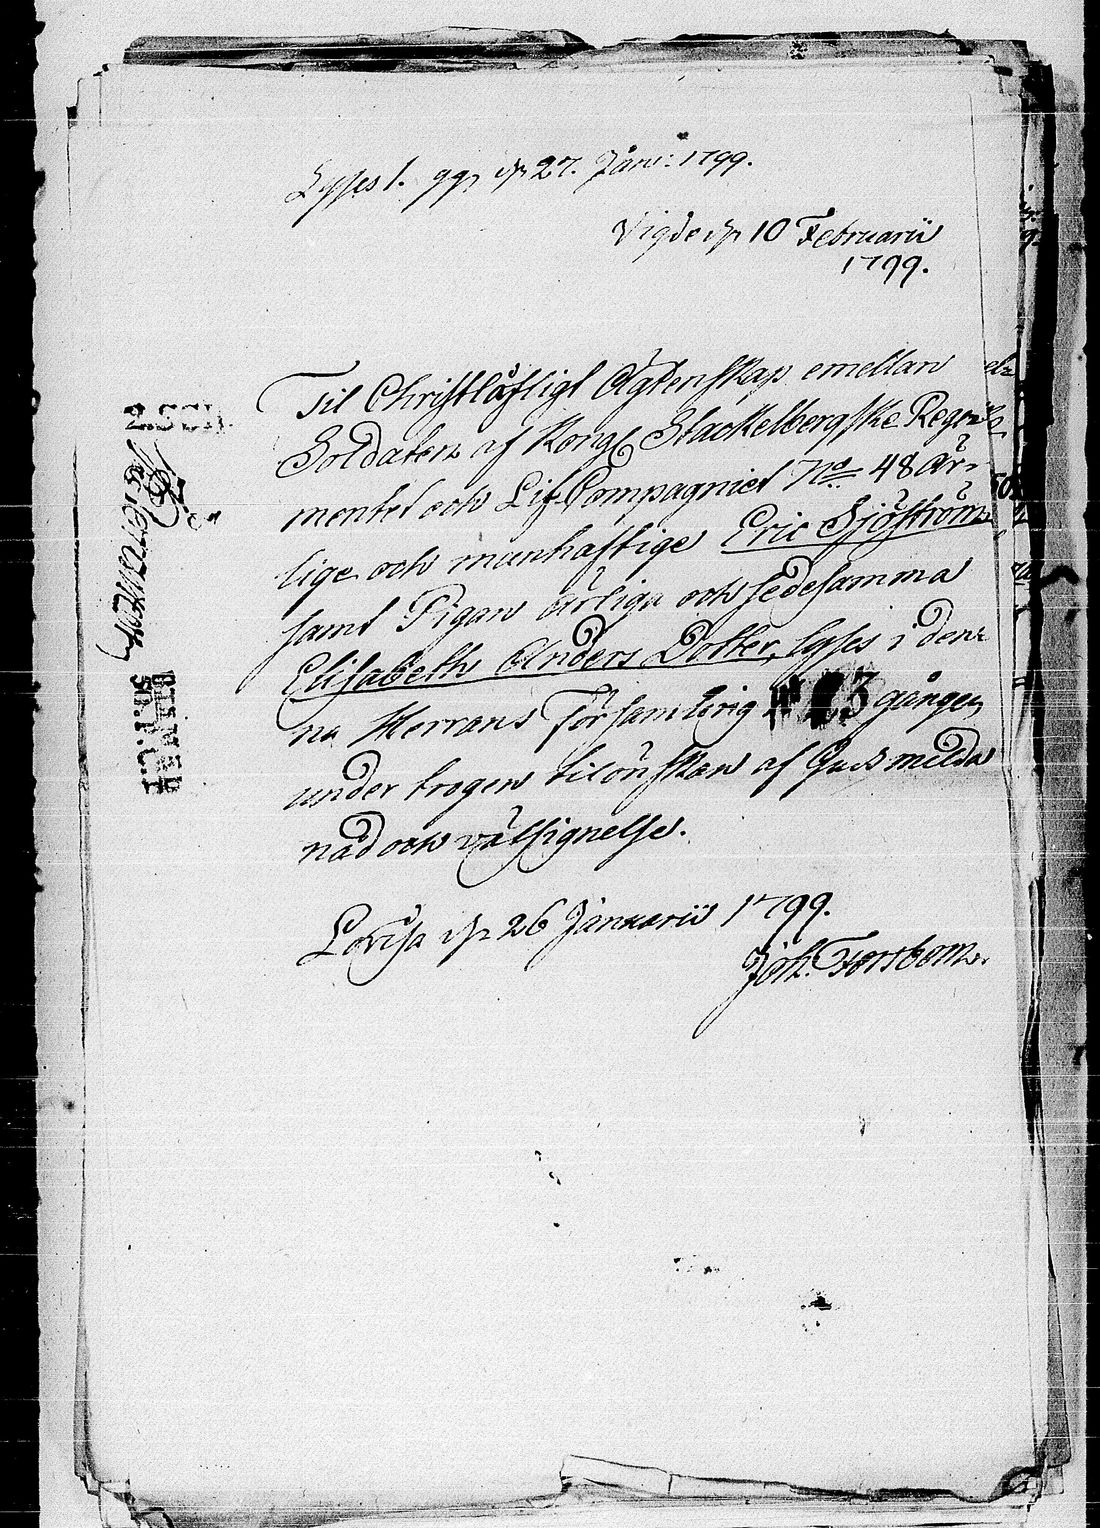 Lyses 1. gg, d. 27. Janu: 1799.
Vigde d. 10 Februarii
1799.
Til Christlöfligt Ägtenskap emellan
Soldaten af Kongl Stackelbergske Rege-
mentet och Lif Compagniet No 48 är-
lige och manhaftige Eric Sjöström
samt Pigan ärliga och sedesamma
Elisabeth Anders Dotter, lyses i den-
na Herrans Församling 3 gången
under trogen tilönskan af Guds milda
nåd och välsignelse.
Lovisa d. 26 Januarii 1799.
Joh. Forsbom